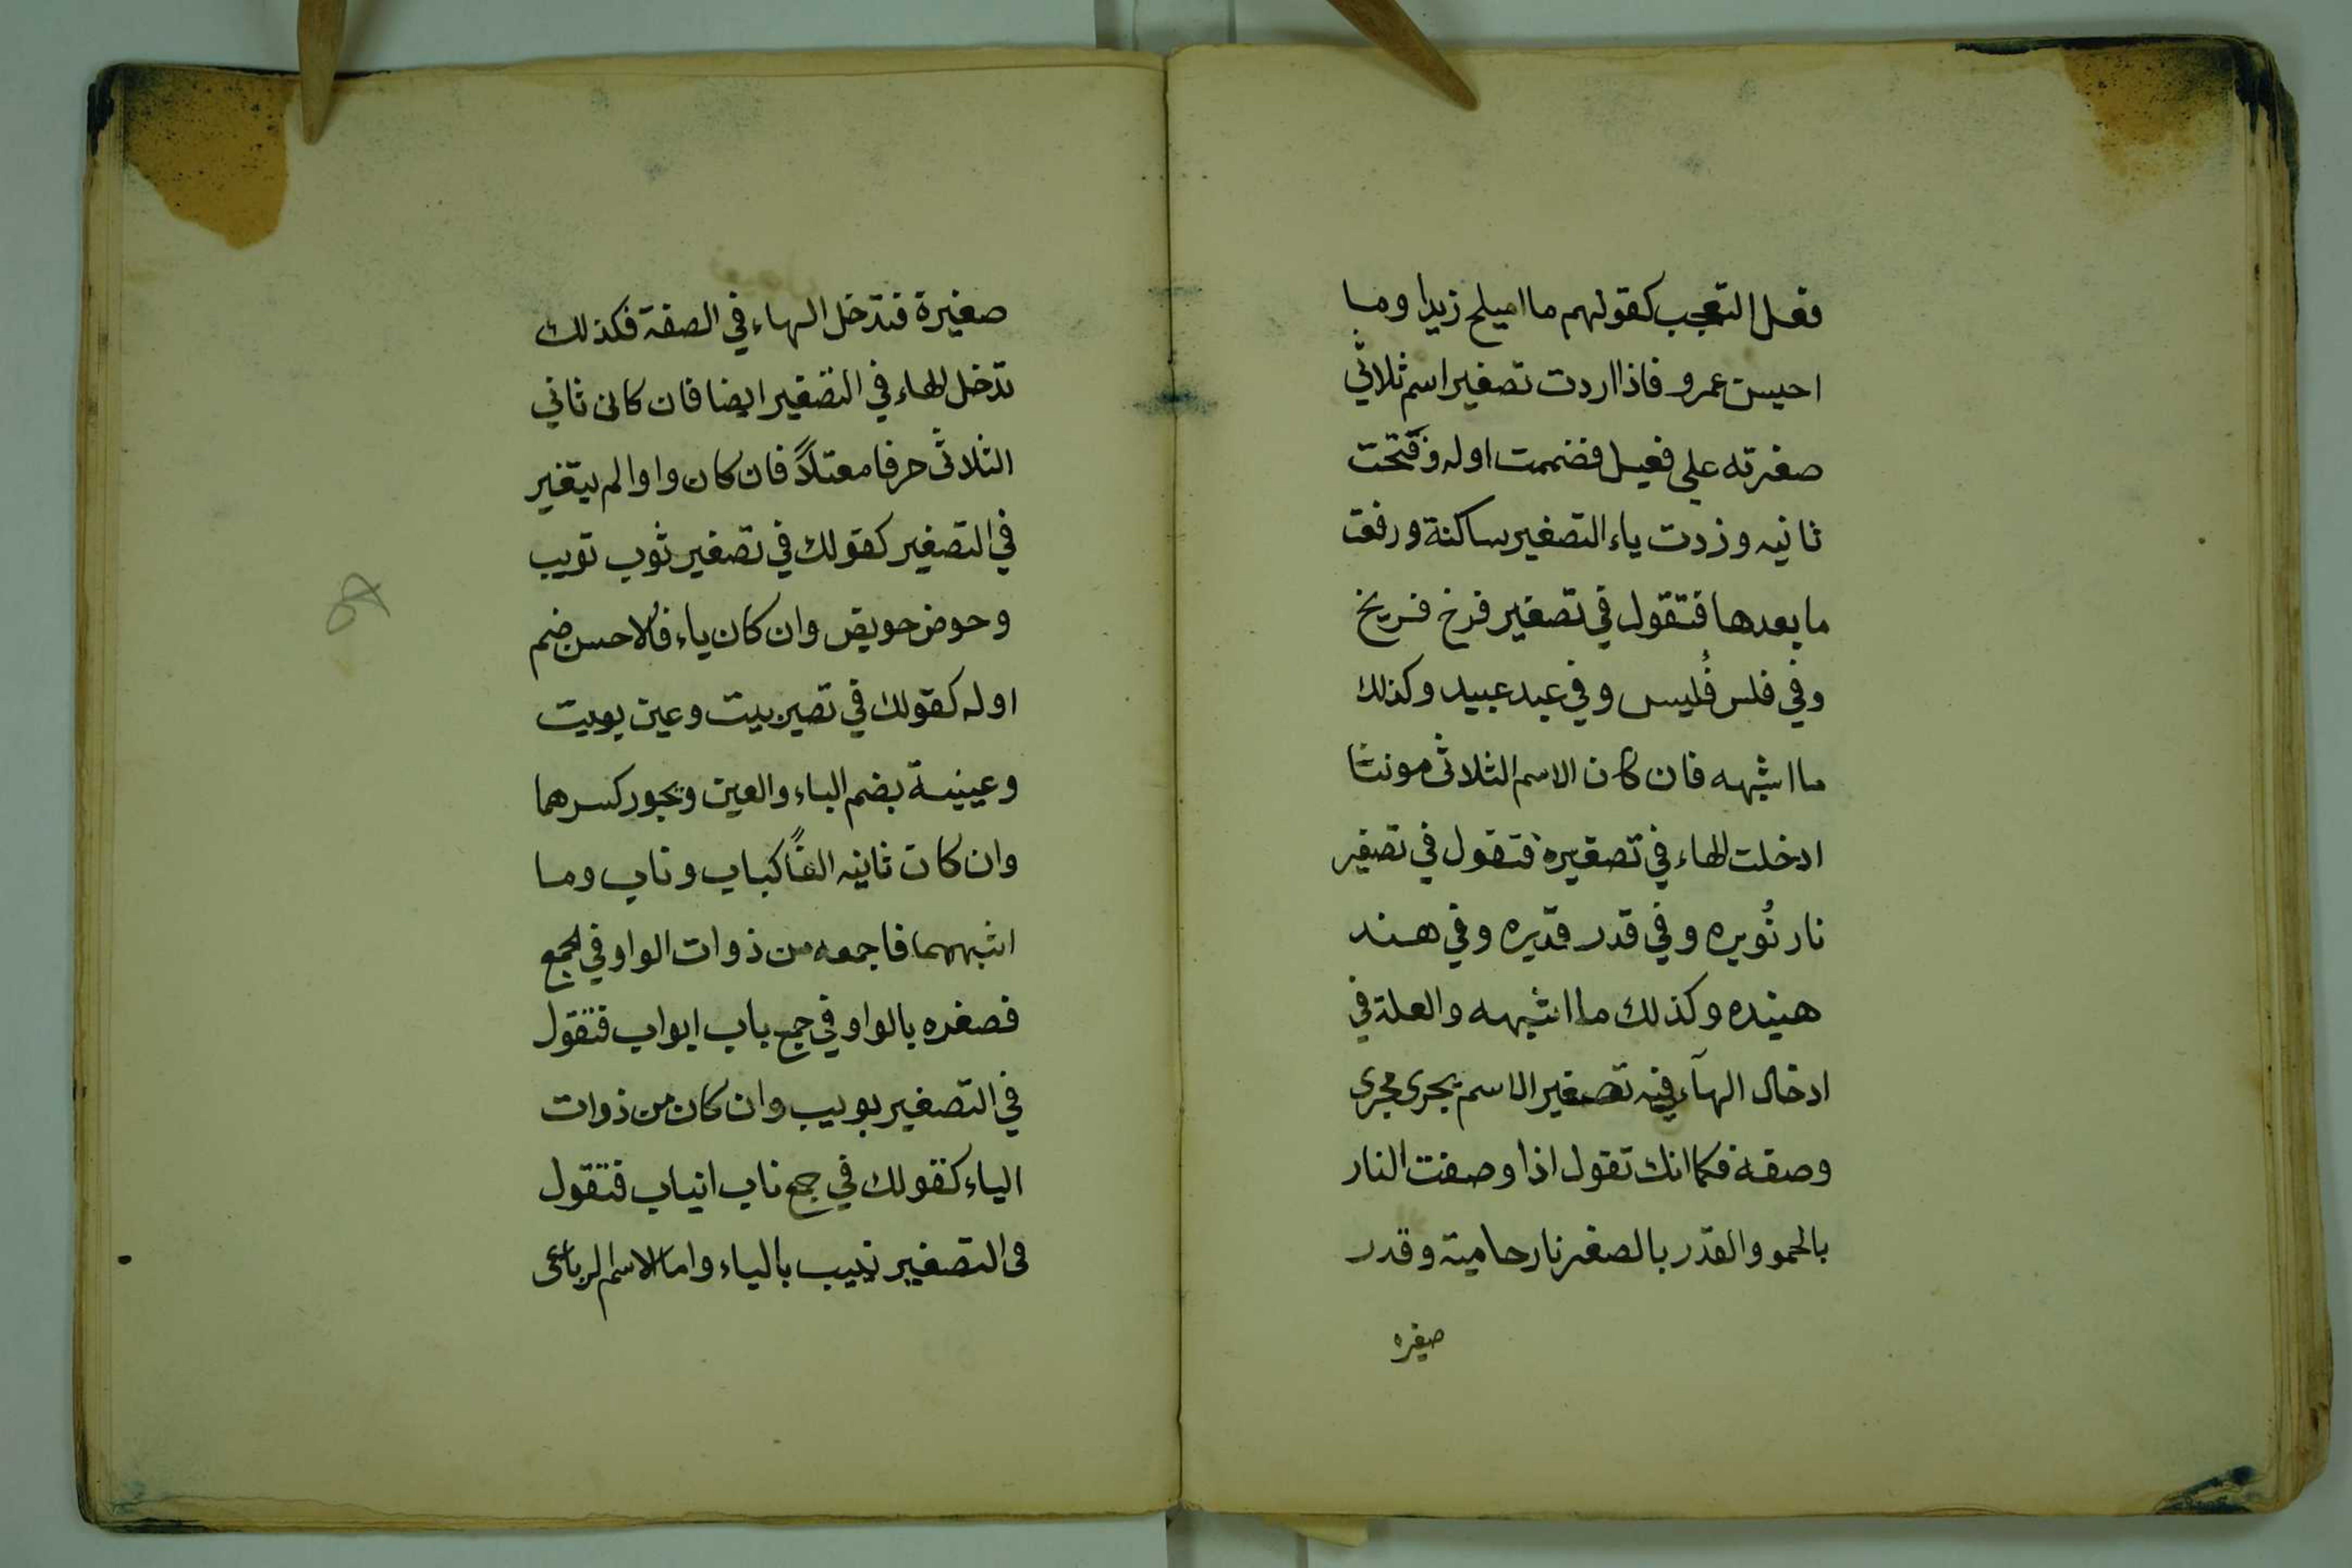 فعل التعجب كقولهم ما اميلح زيدا وما
احيسن عمرو فاذا اردت تصغير اسم ثلاثي
صغرته علي فعيل فضممت اوله وفتحت
ثانيه وزدت ياء التصغير ساكنة ورفعت
ما بعدها فتقول في تصغير فرخ فريخ
وفي فلس فُليس وفي عبد عبيد وكذلك
ما اشبهه فان كان الاسم الثلاثي مونثا
ادخلت الهاء في تصغيره فتقول في تصغير
نار نُويره وفي قدر قديره وفي هند
هنيده وكذلك ما اشبهه والعلة في
ادخال الهآء فيه تصغير الاسم يجرى مجرى
وصفه فكما انك تقول اذا وصفت النار
بالحمو والقدر بالصغر نار حامية وقدر
صغيره
صغيرة فتدخل الهاء في الصفة فكذلك
تدخل الهاء في التصغير ايضا فان كان ثاني
الثلاثي حرفا معتلاً فان كان واوا لم يتغير
في التصغير كقولك في تصغير ثوب ثويب
وحوض حويض وان كان ياء فالاحسن ضم
اوله كقولك في تصير بيت وعين بييت
وعيينة بضم الباء والعين ويجوز كسرهما
وان كان ثانيه الفاً كباب وناب وما
اشبههما فاجمعه من ذوات الواو في الجمع
فصغره بالواو في جمع باب ابواب فتقول
في التصغير بويب وان كان من ذوات
الياء كقولك في جمع ناب انياب فتقول
في التصغير نييب بالياء واما الاسم الرباعى